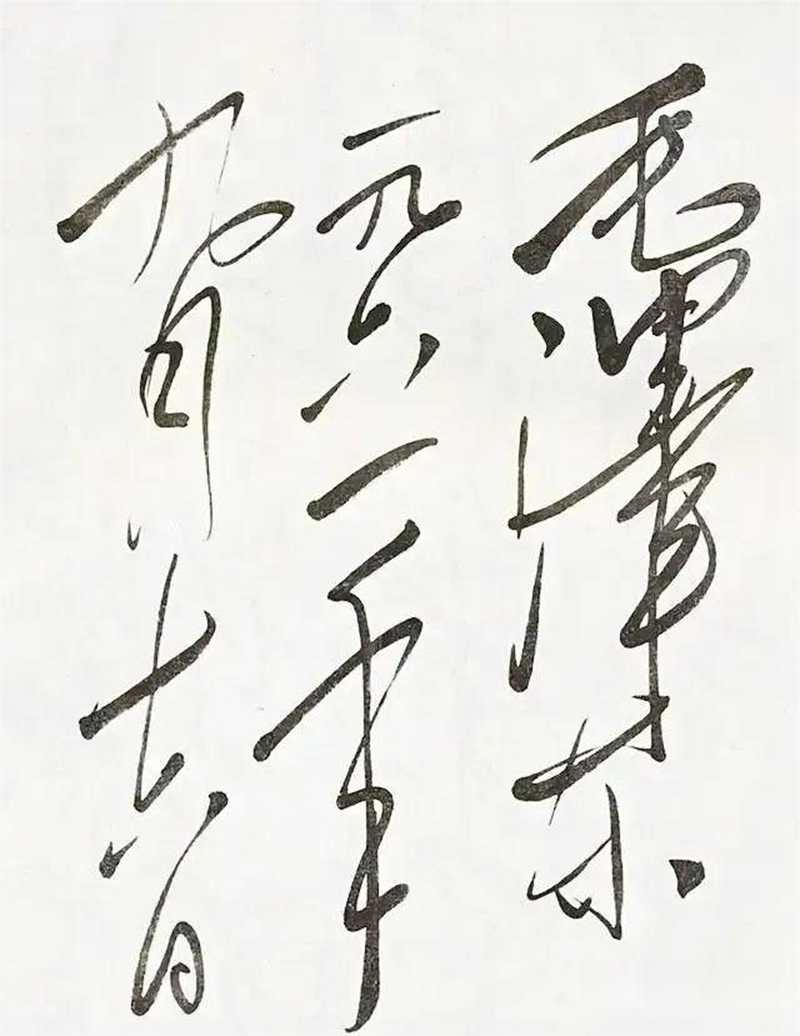 毛泽东
一九六一年
九月十六日